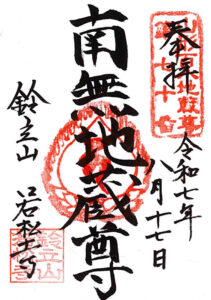 奉拝
令和七年
八月十七日
南無地蔵尊
鈴立山
若松寺